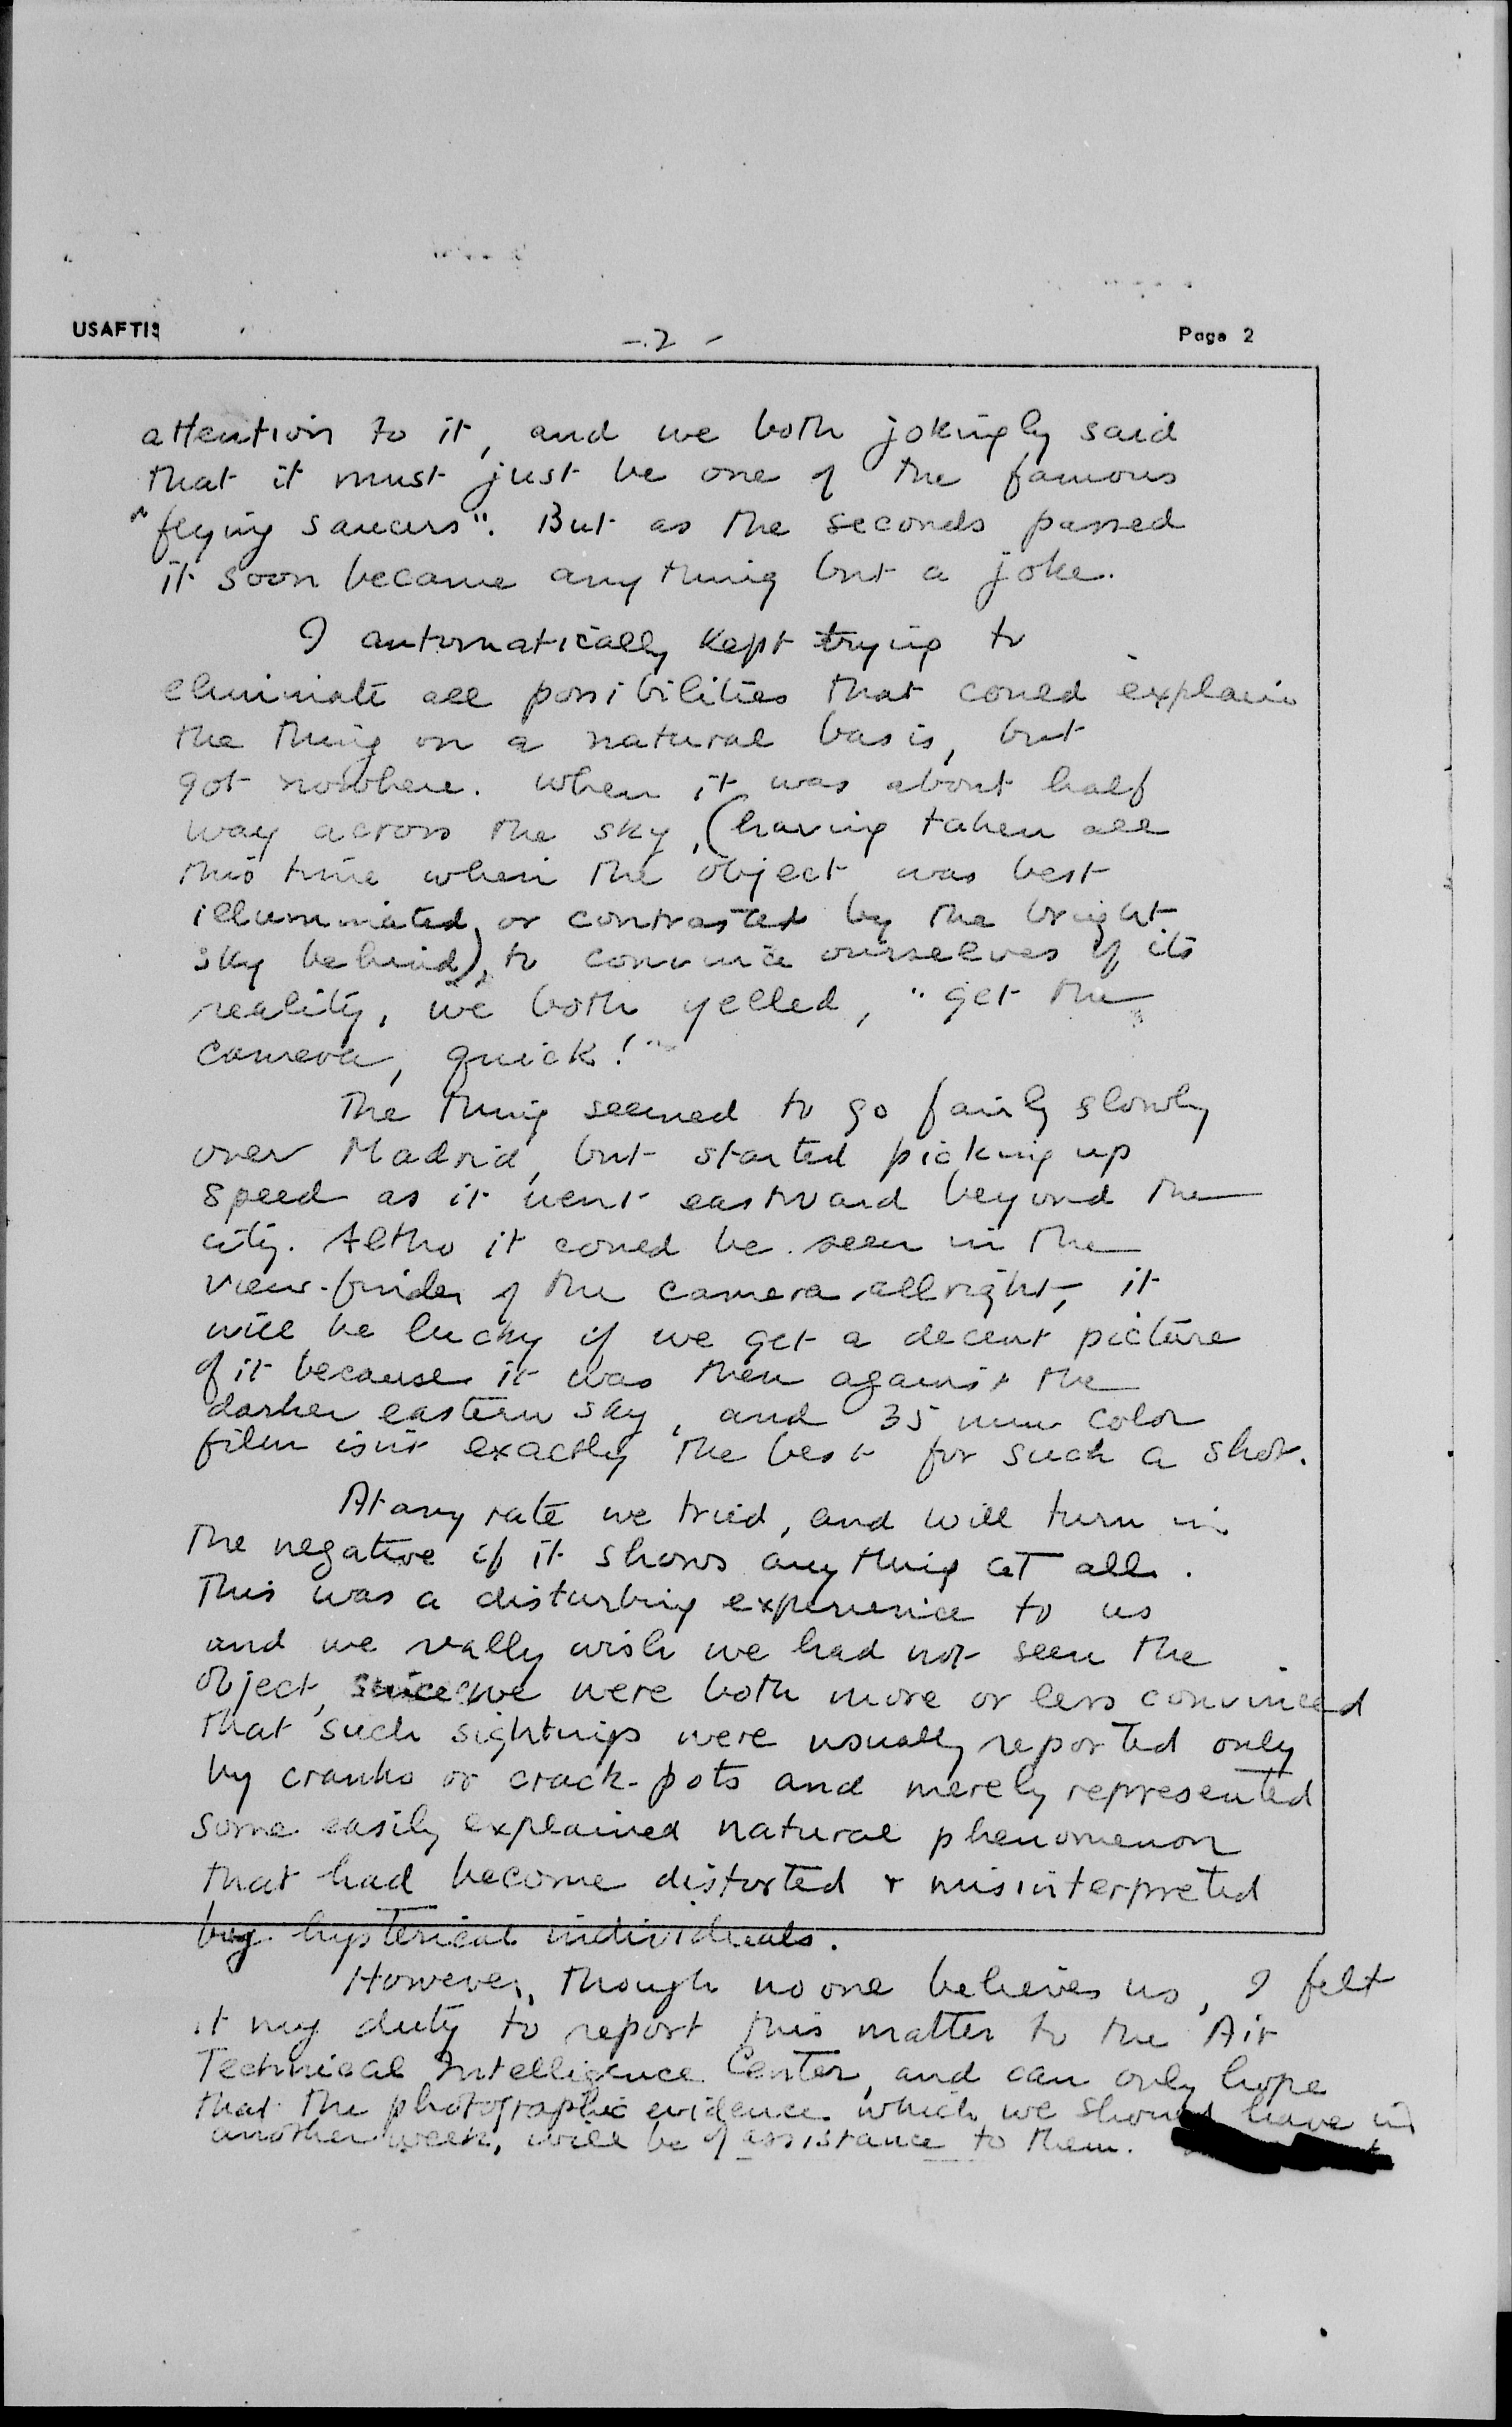 USAFTIS
- 2 -
Page 2
attention to it, and we both jokingly said
that it must just be one of the famous
"flying saucers". But as the seconds passed
it soon became anything but a joke.
I automatically kept trying to
eliminate all possibilities that could explain
the thing on a natural basis, but
got nowhere. When it was about half
way across the sky, (having taken all
this time when the object was best
illuminated, or contrasted by the bright
sky behind), to convince ourselves of its
reality, we both yelled, "get the
camera, quick!"
The thing seemed to go fairly slowly
over Madrid, but started picking up
speed as it went eastward beyond the
city. Altho it could be seen in the
view-finder of the camera allright, it
will be lucky if we get a decent picture
of it because it was then against the
darker eastern sky, and 35 mm color
film isn't exactly the best for such a shot.
At any rate we tried, and will turn in
the negative if it shows anything at all.
This was a disturbing experience to us
and we really wish we had not seen the
object, since we were both more or less convinced
that such sightings were usually reported only
by cranks or crack-pots and merely represented
some easily explained natural phenomenon
that had become distorted & misinterpreted
by hysterical individuals.
However, though no one believes us, I felt
it my duty to report this matter to the Air
Technical Intelligence Center, and can only hope
that the photographic evidence which we should have in
another week, will be of assistance to them.